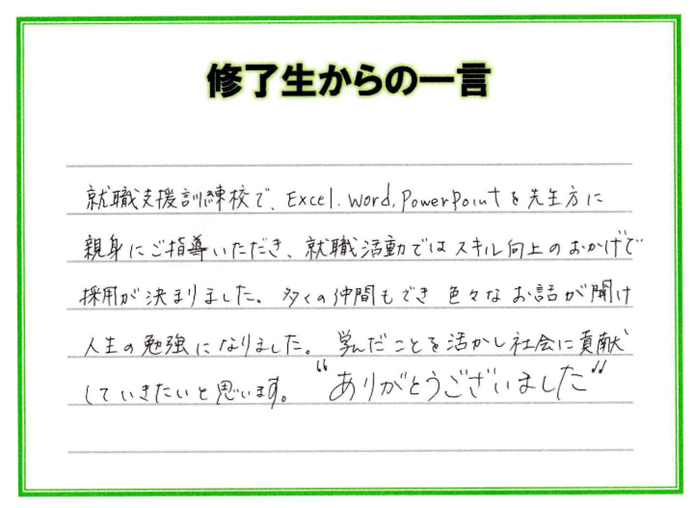 修了生からの一言
就職支援訓練校で、Excel.Word,PowerPointを先生方に
親身にご指導いただき、就職活動ではスキル向上のおかげで
採用が決まりました。多くの仲間もでき色々なお話が聞け
人生の勉強になりました。学んだことを活かし社会に貢献
していきたいと思います。“ありがとうございました”